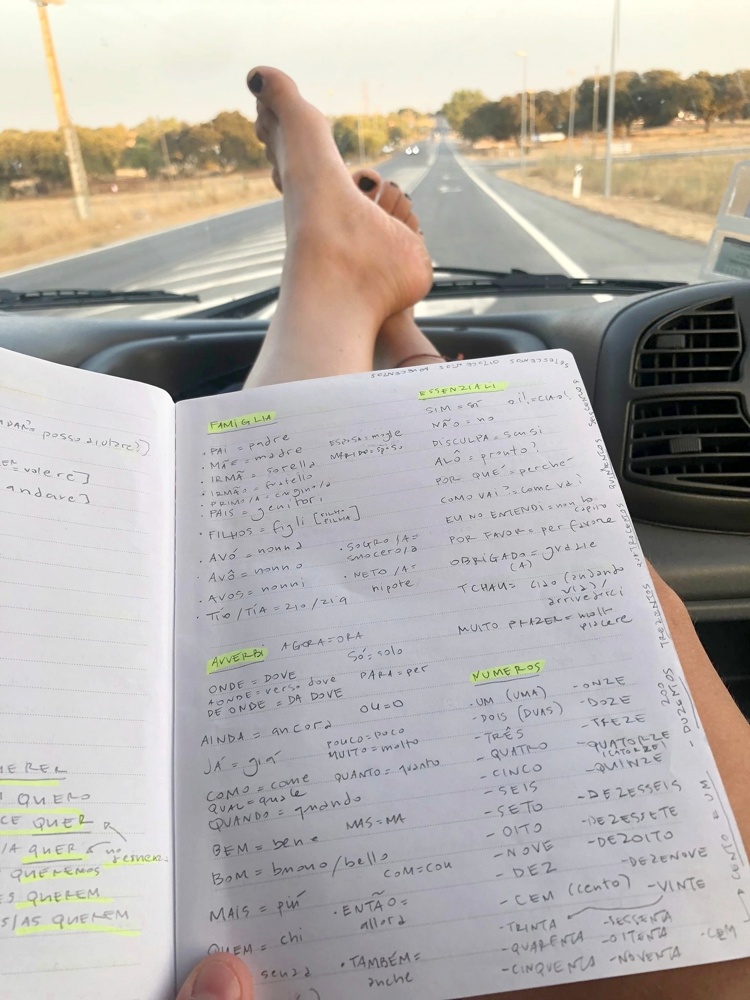 posso aiutare?)
= valere]
andare]
QUERER
QUERO
CE QUER
/A QUER
QUEREMOS
QUEREM
S/AS QUEREM
FAMIGLIA
• PAI = padre
ESPOSA = moglie
• MÃE = madre
MARIDO = sposo
• IRMÃ = sorella
• IRMÃO = fratello
• PRIMO/A = cugino/a
• PAIS = genitori
• FILHOS = figli [FILHO, FILHA]
• AVÓ = nonna
• SOGRO/A =
suocero/a
• AVÔ = nonno
• NETO/A =
nipote
• AVOS = nonni
• TIO/TÍA = zio/zia
ESSENZIALI
SIM = sí
OI! = CIAO!
NÃO = no
DISCULPA = scusi
ALÔ = pronto?
POR QUÉ = perché
COMO VAI? = come va?
EU NO ENTENDI = non ho
capito
POR FAVOR = per favore
OBRIGADO = grazie
(A)
TCHAU = ciao (andando
via) /
arrivederci
MUITO PRAZER = molt
piacere
AVVERBI
AGORA = ORA
SÓ = solo
ONDE = DOVE
AONDE = verso dove
PARA = per
DE ONDE = DA DOVE
OU = O
AINDA = ancora
POUCO = poco
MUITO = molto
JÁ = giá
COMO = come
QUANTO = quanto
QUAL = quale
QUANDO = quando
MAS = MA
BEM = bene
BOM = buono/bello
COM = CON
MAIS = piú
• ENTÃO =
allora
QUEM = chi
senza
• TAMBÉM =
anche
NUMEROS
- UM (UMA)
- DOIS (DUAS)
- TRÊS
- QUATRO
- CINCO
- SEIS
- SETO
- OITO
- NOVE
- DEZ
- CEM (cento)
- ONZE
- DOZE
- TREZE
- QUATORZE
(CATORZE)
- QUINZE
- DEZESSEIS
- DEZESSETE
- DEZOITO
- DEZENOVE
- VINTE
- TRINTA
- SESSENTA
- QUARENTA
- OITENTA
- CINQUENTA
- NOVENTA
- CEM
CENTO E UM
- DUZENTOS
200
TREZENTOS
QUATROCENTOS
QUINHENTOS